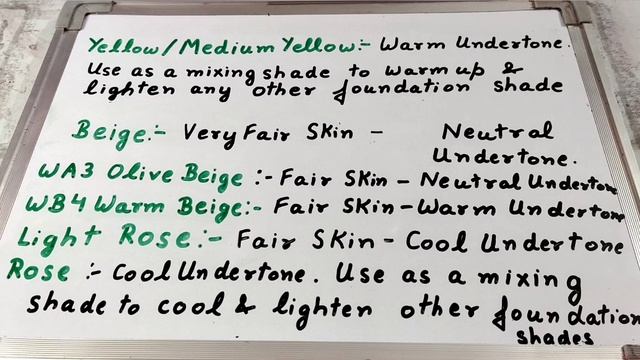 Yellow/Medium Yellow:- Warm Undertone.
Use as a mixing shade to warm up &
lighten any other foundation shade
Beige:- Very Fair Skin - Neutral
Undertone.
WA3 Olive Beige :- Fair Skin - Neutral Undertone
WB4 Warm Beige:- Fair Skin-Warm Undertone
Light Rose:- Fair Skin - Cool Undertone
Rose :- Cool Undertone. Use as a mixing
shade to cool & lighten other foundation
shades